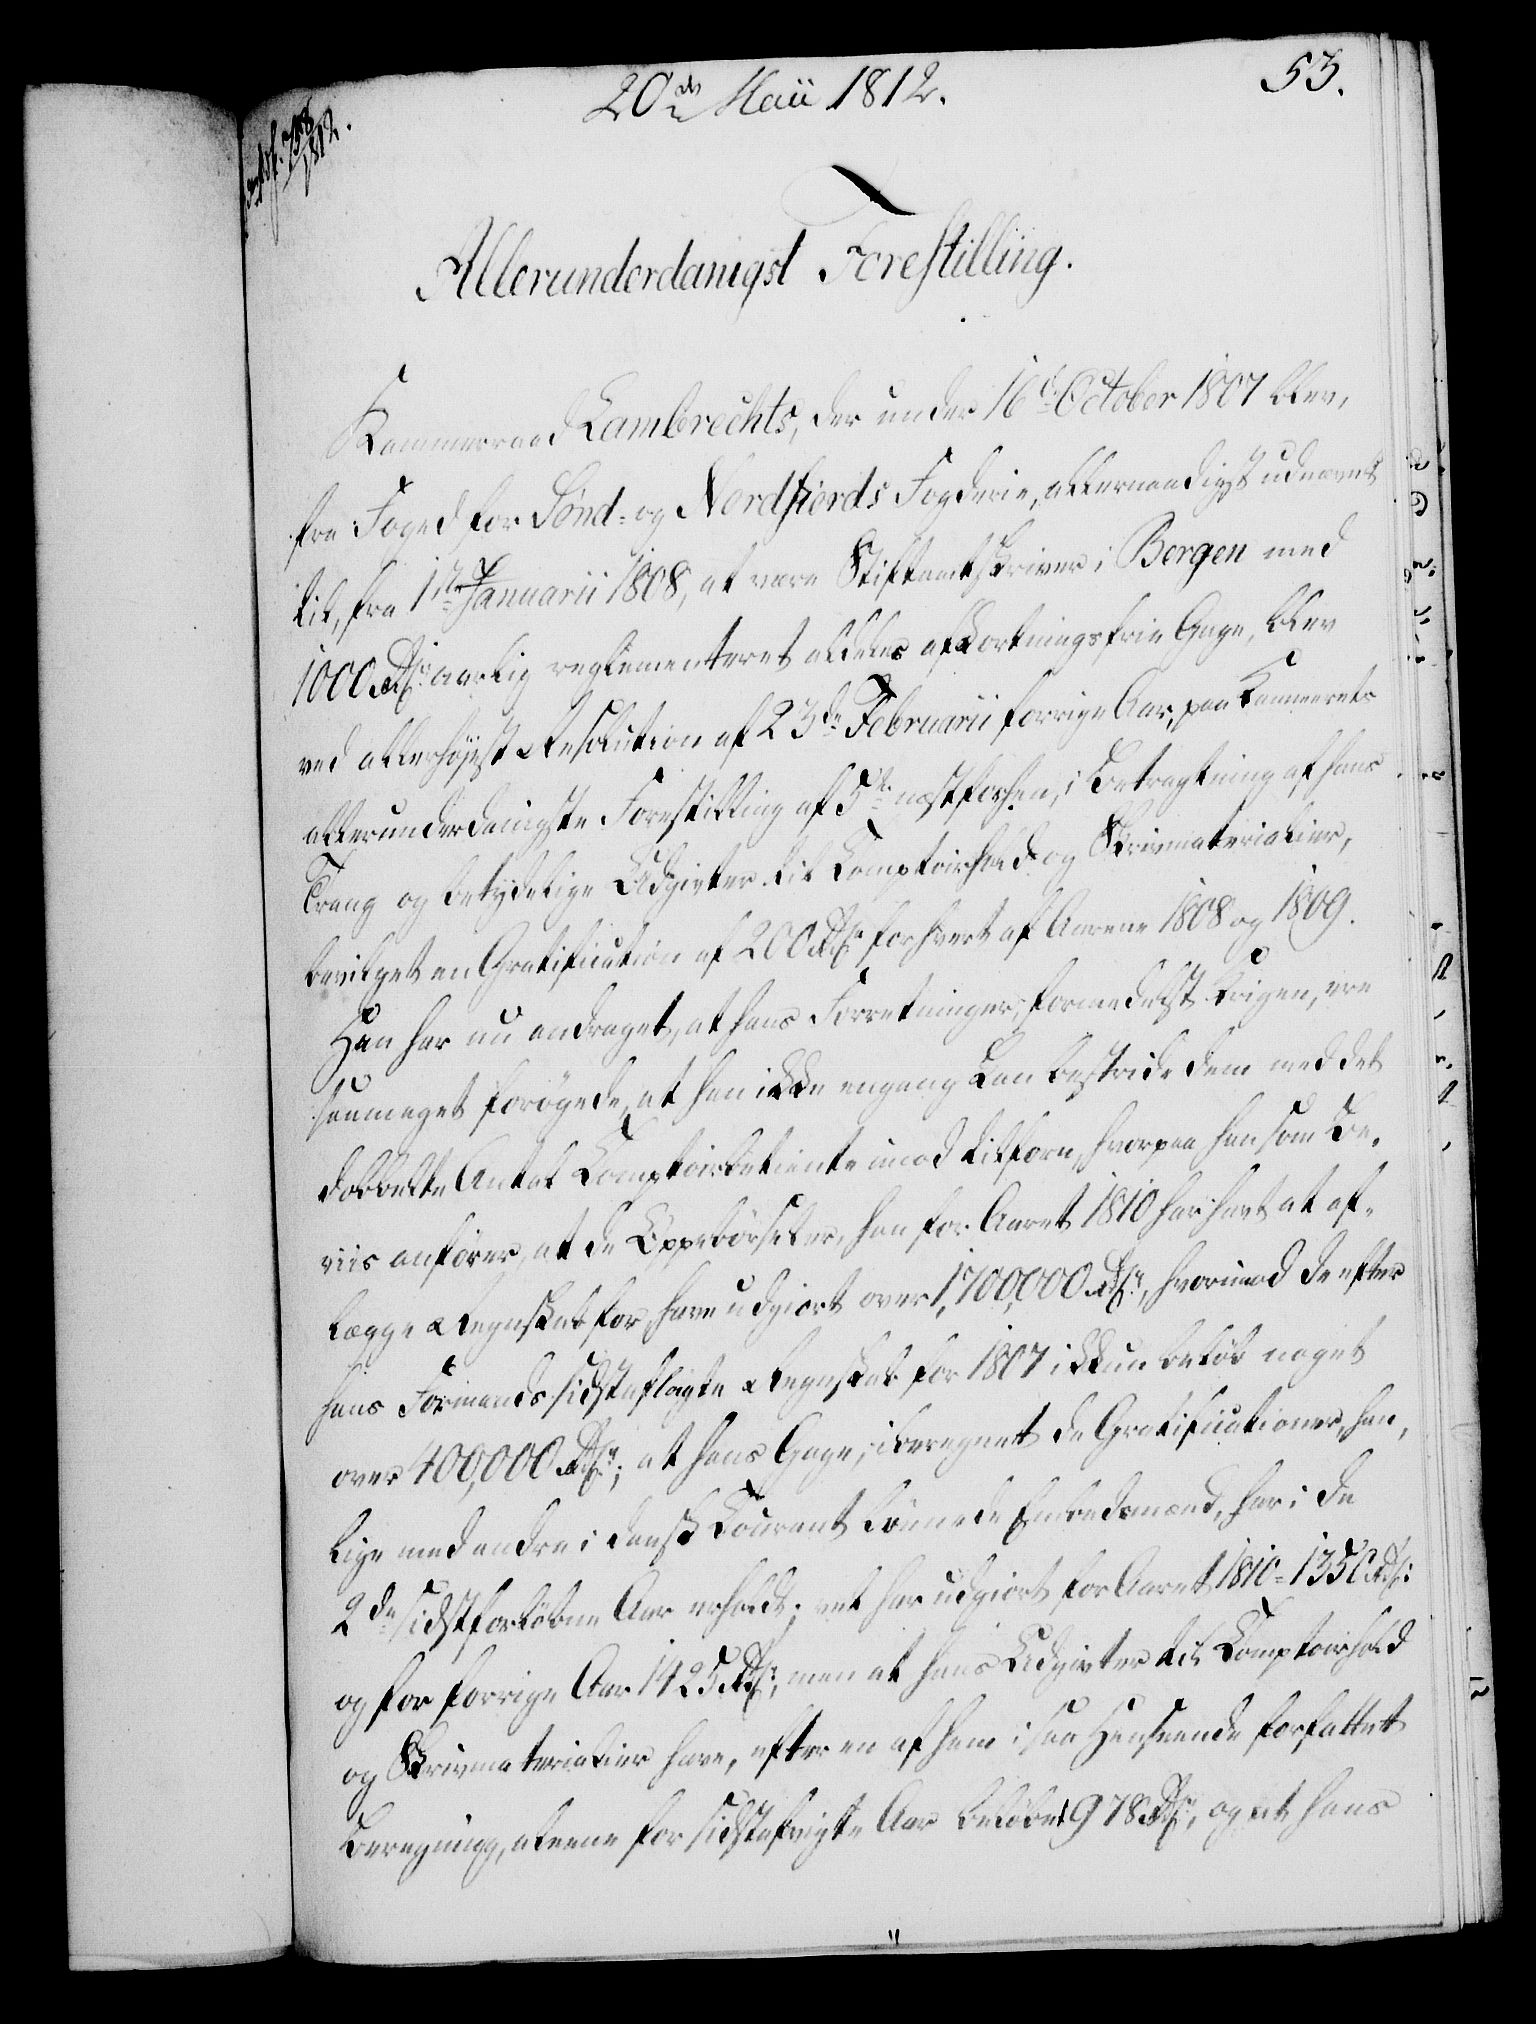 20de Maii 1812.
53.
758
1812.
Allerunderdanigst Forestilling.
Kammerraad Lambrechts, der under 16de October 1807 blev,
fra Foged for Sønd- og Nordfiords Fogderie, allernaadigst udnævnt
til, fra 1ste Januarii 1808, at være Stiftamtskriver i Bergen med
1000 Rdr aarlig reglementeret aldeles afkortningsfrie Gage, blev
ved allerhøyeste Resolution af 23de Februarii forrige Aar, paa Kammerets
allerunderdanigste Forestilling af 5te næstforhen, i Betragtning af hans
Trang og betydelige Udgivter til Comptoirhold og Skrivmaterialier,
bevilget en Gratification af 200 Rdr for hvert af Aarene 1808 og 1809.
Han har nu andraget, at hans Forretninger, formedelst Krigen, ere
saameget forøgede, at han ikke engang kan bestride dem med det
dobbelte Antal Comptoirbetiente imod tilforn, hvorpaa han som Be-
viis anfører, at de Oppebørseler, han for Aaret 1810 har havt at af-
lægge Regnskab for, have udgiort over 1,700,000 Rdr, hvorimod de efter
hans Formands sidst aflagte Regnskab for 1807 ikkun beløb noget
over 400,000 Rdr; at hans Gage, iberegnet de Gratificationer, han,
lige med andre i dansk Courant lønnede Embedsmænd, har i de
2de sidstforløbne Aar erholdt, vel har udgiort for Aaret 1810 = 1350 Rdr
og for forrige Aar 1425 Rdr, men at hans Udgivter til Comptoirhold
og Skrivmaterialier have, efter en af ham i saa Henseende forfattet
Beregning, alene for sidstafvigte Aar beløbet 978 Rdr, og at hans